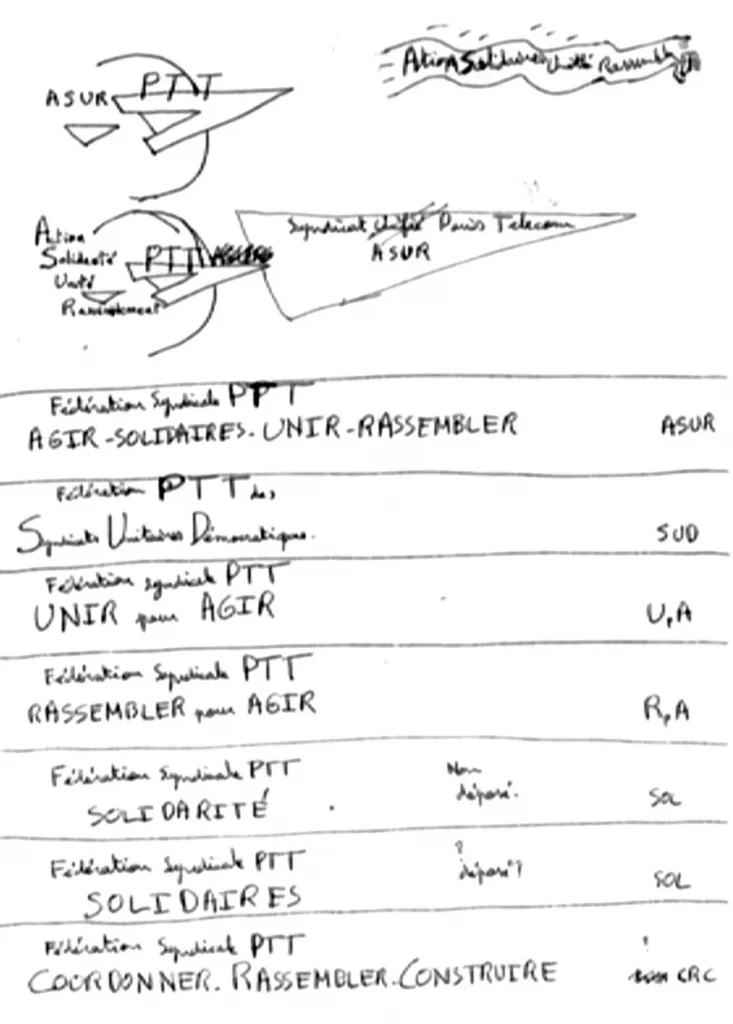 ASUR PTT
Action Solidaires Unité Rassembl
Action
Solidarité
Unité
Rassemblement
PTT
Syndicat Unifié Paris Telecom
ASUR
Fédération Syndicale PPT
AGIR-SOLIDAIRES-UNIR-RASSEMBLER ASUR
Fédération PTT des
Syndicats Unitaires Démocratiques. SUD
Fédération syndicale PTT
UNIR pour AGIR U,A
Fédération Syndicale PTT
RASSEMBLER pour AGIR R,A
Fédération Syndicale PTT Non
SOLIDARITÉ déposé. SOL
Fédération Syndicale PTT ?
SOLIDAIRES déposé? SOL
Fédération Syndicale PTT !
COORDONNER. RASSEMBLER. CONSTRUIRE CRC